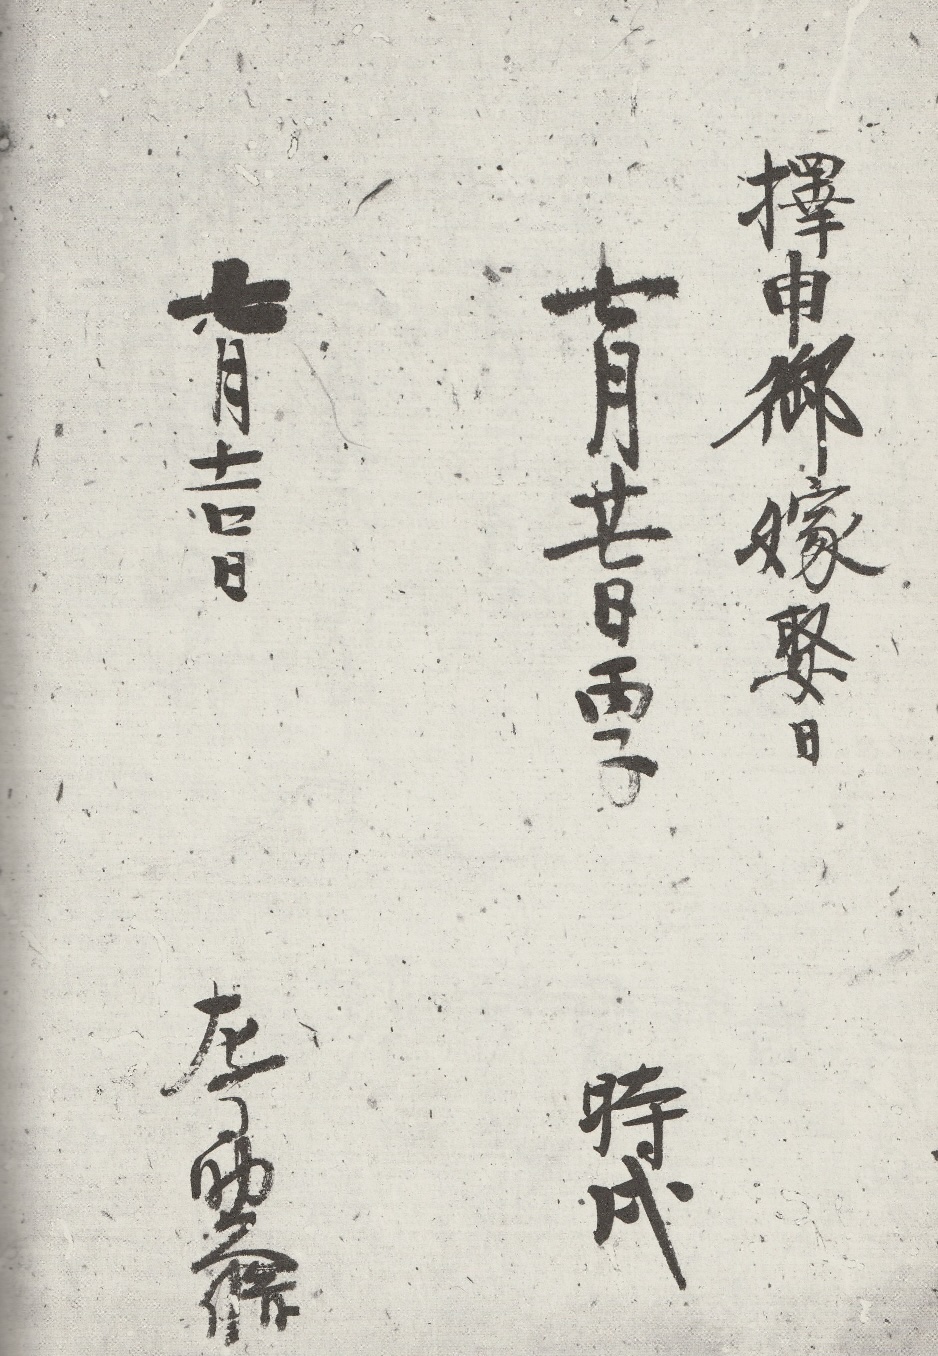 擇申御嫁娶日
七月廿七日丙子
時戌
七月吉日
左馬助